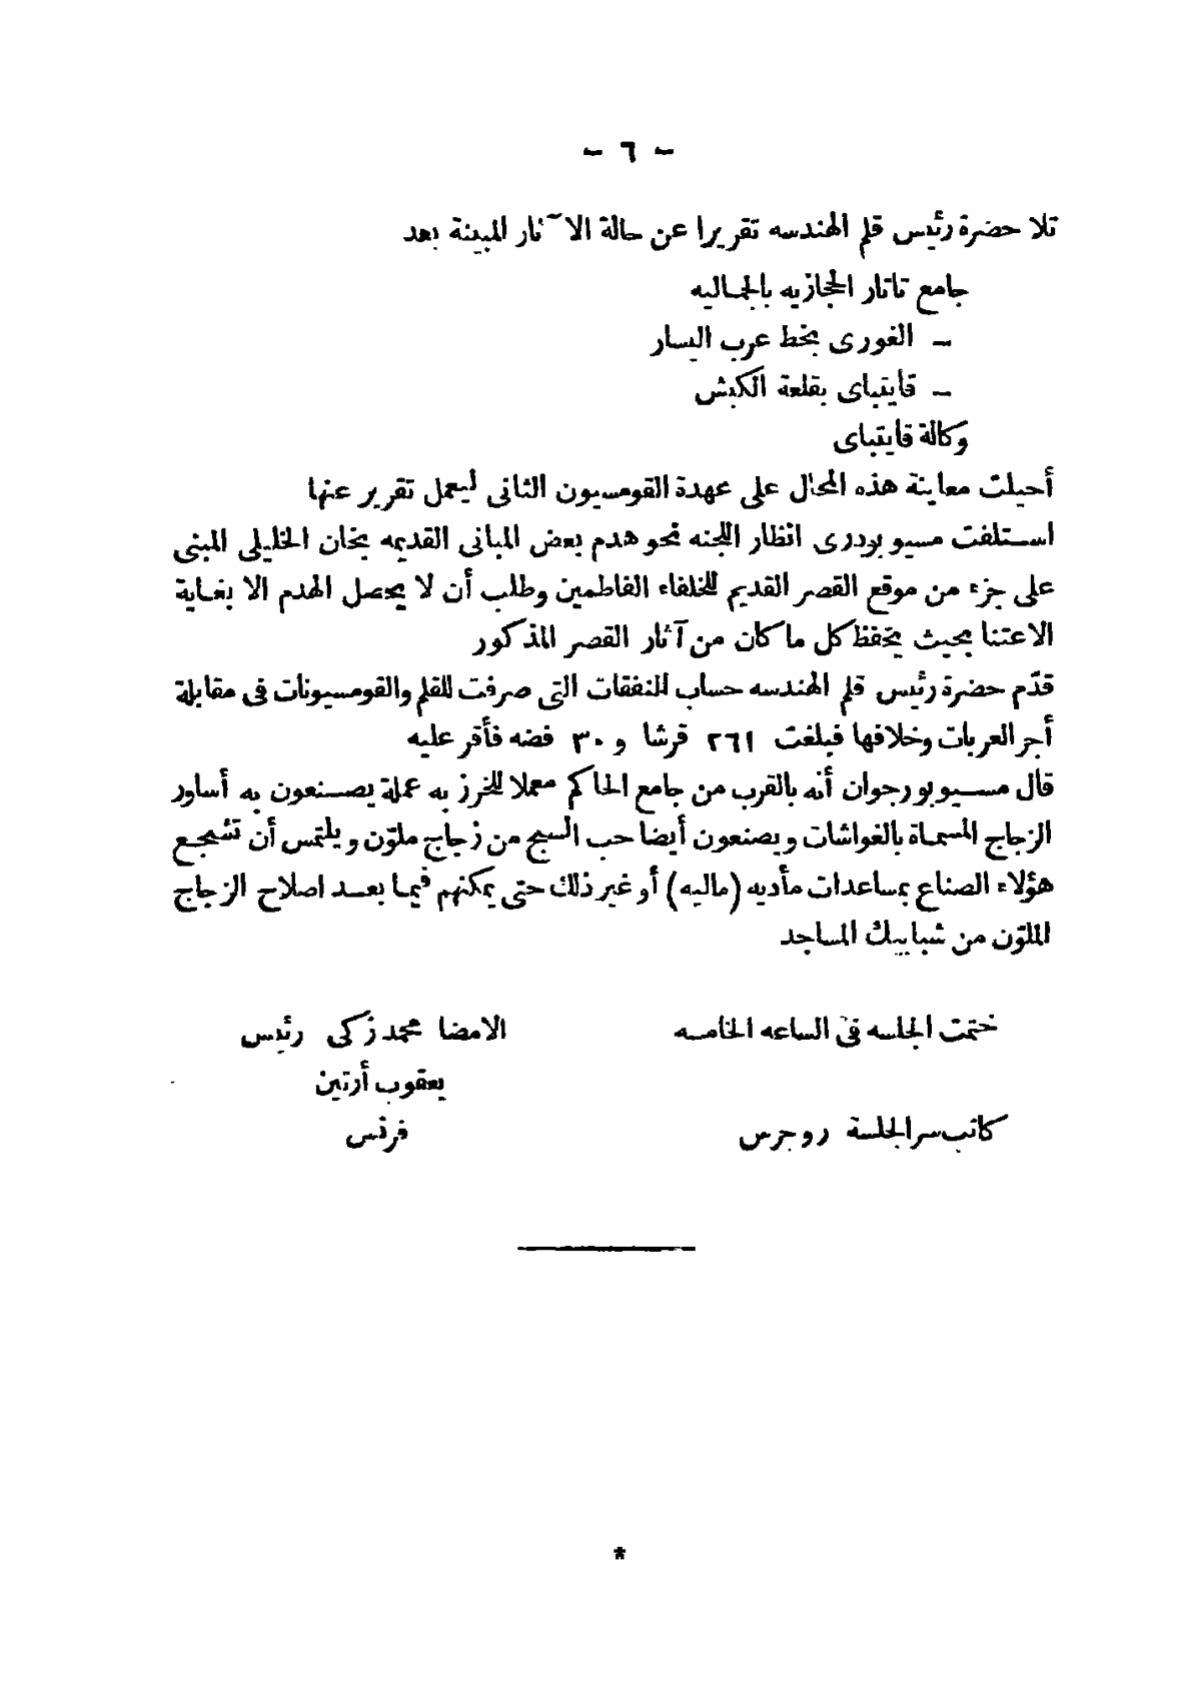 - ٦ -
تلا حضرة رئيس قلم الهندسه تقريرا عن حالة الآثار المبينة بعد
جامع تاتار الحجازيه بالجماليه
- الغورى بخط عرب اليسار
- قايتباى بقلعة الكبش
وكالة قايتباى
أحيلت معاينة هذه المحال على عهدة القومسيون الثانى ليعمل تقرير عنها
استلفت مسيو بودرى انظار اللجنه نحو هدم بعض المبانى القديمه بخان الخليلى المبنى
على جزء من موقع القصر القديم للخلفاء الفاطمين وطلب أن لا يحصل الهدم الا بغاية
الاعتنا بحيث يحفظ كل ما كان من آثار القصر المذكور
قدّم حضرة رئيس قلم الهندسه حساب المنفقات التى صرفت للقلم والقومسيونات فى مقابلة
أجر العربات وخلافها فبلغت ٢٦١ قرشا و ٣٠ فضه فأقر عليه
قال مسيو بورجوان أنه بالقرب من جامع الحاكم معملا للخرز به عملة يصنعون به أساور
الزجاج المسماة بالغواشات ويصنعون أيضا حب السبح من زجاج ملوّن ويلتمس أن تشجع
هؤلاء الصناع بمساعدات مأديه (ماليه) أو غير ذلك حتى يمكنهم فيما بعد اصلاح الزجاج
الملوّن من شبابيك المساجد
ختمت الجلسه فى الساعه الخامسه
الامضا محمد زكى رئيس
يعقوب أرتين
كاتب سر الجلسة روجرس
فرنس
*